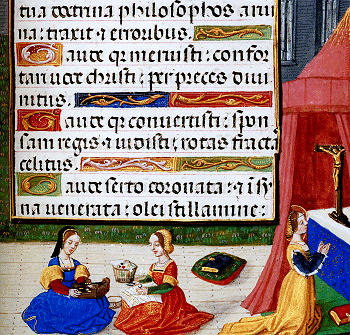 tua doctrina philosophos ani
na: traxit q̃ erroribus.
Gaude qr̃ meruisti: confor
tari voce christi: per preces divi
nitus.
Gaude qr̃ convertisti: spon
sam regis: q̃ vidisti; rotas fracta
celitus
Gaude serto coronata: q̃ i sy
na venerata: olei stillamine: